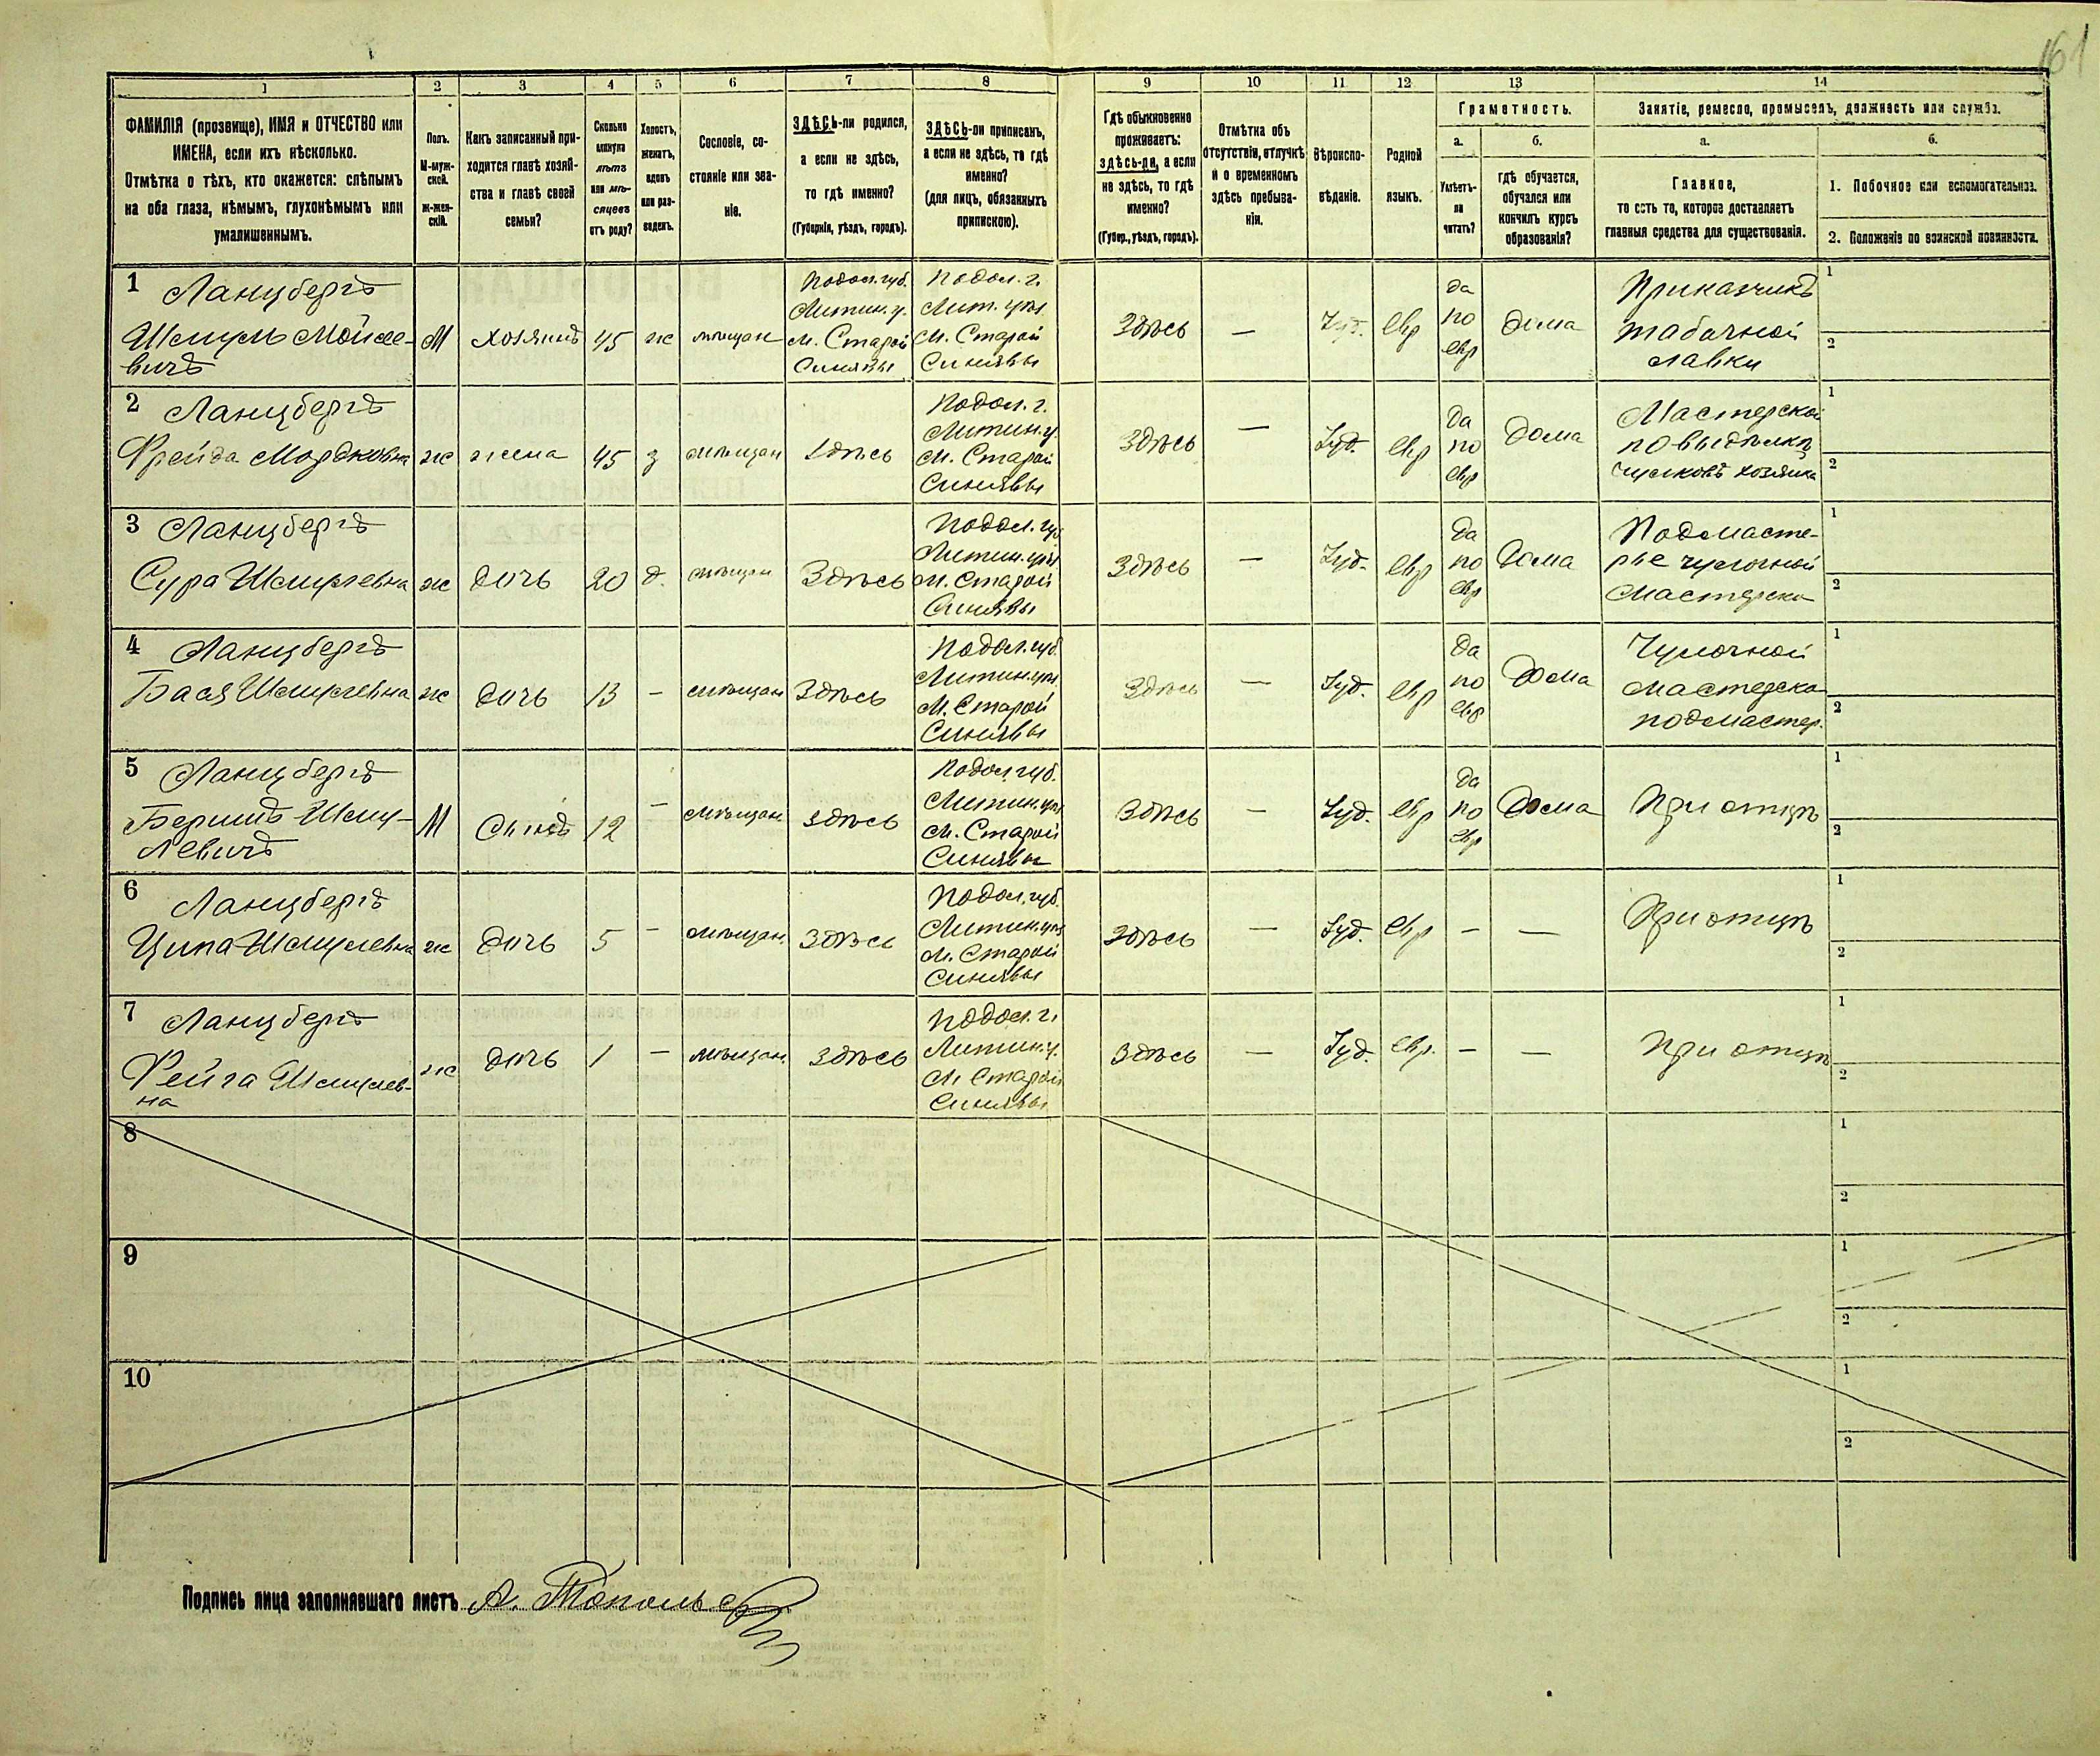 161
1 2 3 4 5 6 7 8 9 10 11 12 13 14
ФАМИЛІЯ (прозвище), ИМЯ и ОТЧЕСТВО или
ИМЕНА, если ихъ нѣсколько.
Отмѣтка о тѣхъ, кто окажется: слѣпымъ
на оба глаза, нѣмымъ, глухонѣмымъ или
умалишеннымъ.
Полъ.
М-муж-
ской.
ж-жен-
скій.
Какъ записанный при-
ходится главѣ хозяй-
ства и главѣ своей
семьи?
Сколько
минуло
лѣтъ
или мѣ-
сяцевъ
отъ роду?
Холостъ,
женатъ,
вдовъ
или раз-
веденъ.
Сословіе, со-
стояніе или зва-
ніе.
ЗДѢСЬ-ли родился,
а если не здѣсь,
то гдѣ именно?
(Губернія, уѣздъ, городъ).
ЗДѢСЬ-ли приписанъ,
а если не здѣсь, то гдѣ
именно?
(для лицъ, обязанныхъ
припискою).
Гдѣ обыкновенно
проживаетъ:
здѣсь-ли, а если
не здѣсь, то гдѣ
именно?
(Губер., уѣздъ, городъ).
Отмѣтка объ
отсутствіи, отлучкѣ
и о временномъ
здѣсь пребыва-
ніи.
Вѣроиспо-
вѣданіе.
Родной
языкъ.
Грамотность.
а.
Умѣетъ-
ли
читать?
б.
гдѣ обучается,
обучался или
кончилъ курсъ
образованія?
Занятіе, ремесло, промыселъ, должность или служба.
а.
Главное,
то есть то, которое доставляетъ
главныя средства для существованія.
б.
1. Побочное или вспомогательное.
2. Положеніе по воинской повинности.
1 Ланцбергъ
Шмуль Мойсе-
вичъ
М
хозяинъ
45
ж
мѣщан
Подол. губ.
Литин. у.
м. Старой
Синявы
Подол. г.
Лит. уѣз
М. Старой
Синявы
Здѣсь
—
Іуд.
евр
да
по
евр
дома
Приказчикъ
табачной
лавки
1
2
2 Ланцбергъ
Фрейда Мордковна
ж
жена
45
з
мѣщан
Здѣсь
Подол. г.
Литин. у.
М. Старой
Синявы
Здѣсь
—
Іуд.
евр
Да
по
евр
Дома
Мастерской
по выдѣлкѣ
чулковъ хозяйка
1
2
3 Ланцбергъ
Сура Шмулевна
ж
дочь
20
д.
мѣщан
Здѣсь
Подол. губ
Литин. уѣз
М. Старой
Синявы
Здѣсь
—
Іуд.
евр
Да
по
евр
Дома
Подмасте-
рье чулочной
Мастерско
1
2
4 Ланцбергъ
Бася Шмулевна
ж
дочь
13
—
мѣщан
Здѣсь
Подол. губ.
Литин. уѣз
М. Старой
Синявы
Здѣсь
—
Іуд.
евр
Да
по
евр
Дома
Чулочной
мастерско
подмастер.
1
2
5 Ланцбергъ
Беришъ Шму-
левичъ
М
Сынъ
12
—
мѣщан
Здѣсь
Подол. губ.
Литин. уѣз
М. Старой
Синявы
Здѣсь
—
Іуд.
евр
Да
по
евр
Дома
При отцѣ
1
2
6 Ланцбергъ
Ципа Шмулевна
ж
дочь
5
—
мѣщан.
Здѣсь
Подол. губ.
Литин. уѣз
М. Старой
Синявы
Здѣсь
—
Іуд.
евр
—
—
При отцѣ
1
2
7 Ланцбергъ
Фейга Шмулев-
на
ж
дочь
1
—
мѣщан.
Здѣсь
Подол. г.
Литин. у.
М. Старой
Синявы
Здѣсь
—
Іуд.
евр.
—
—
При отцѣ
1
2
8
1
2
9
1
2
10
1
2
Подпись лица заполнявшаго листъ А.